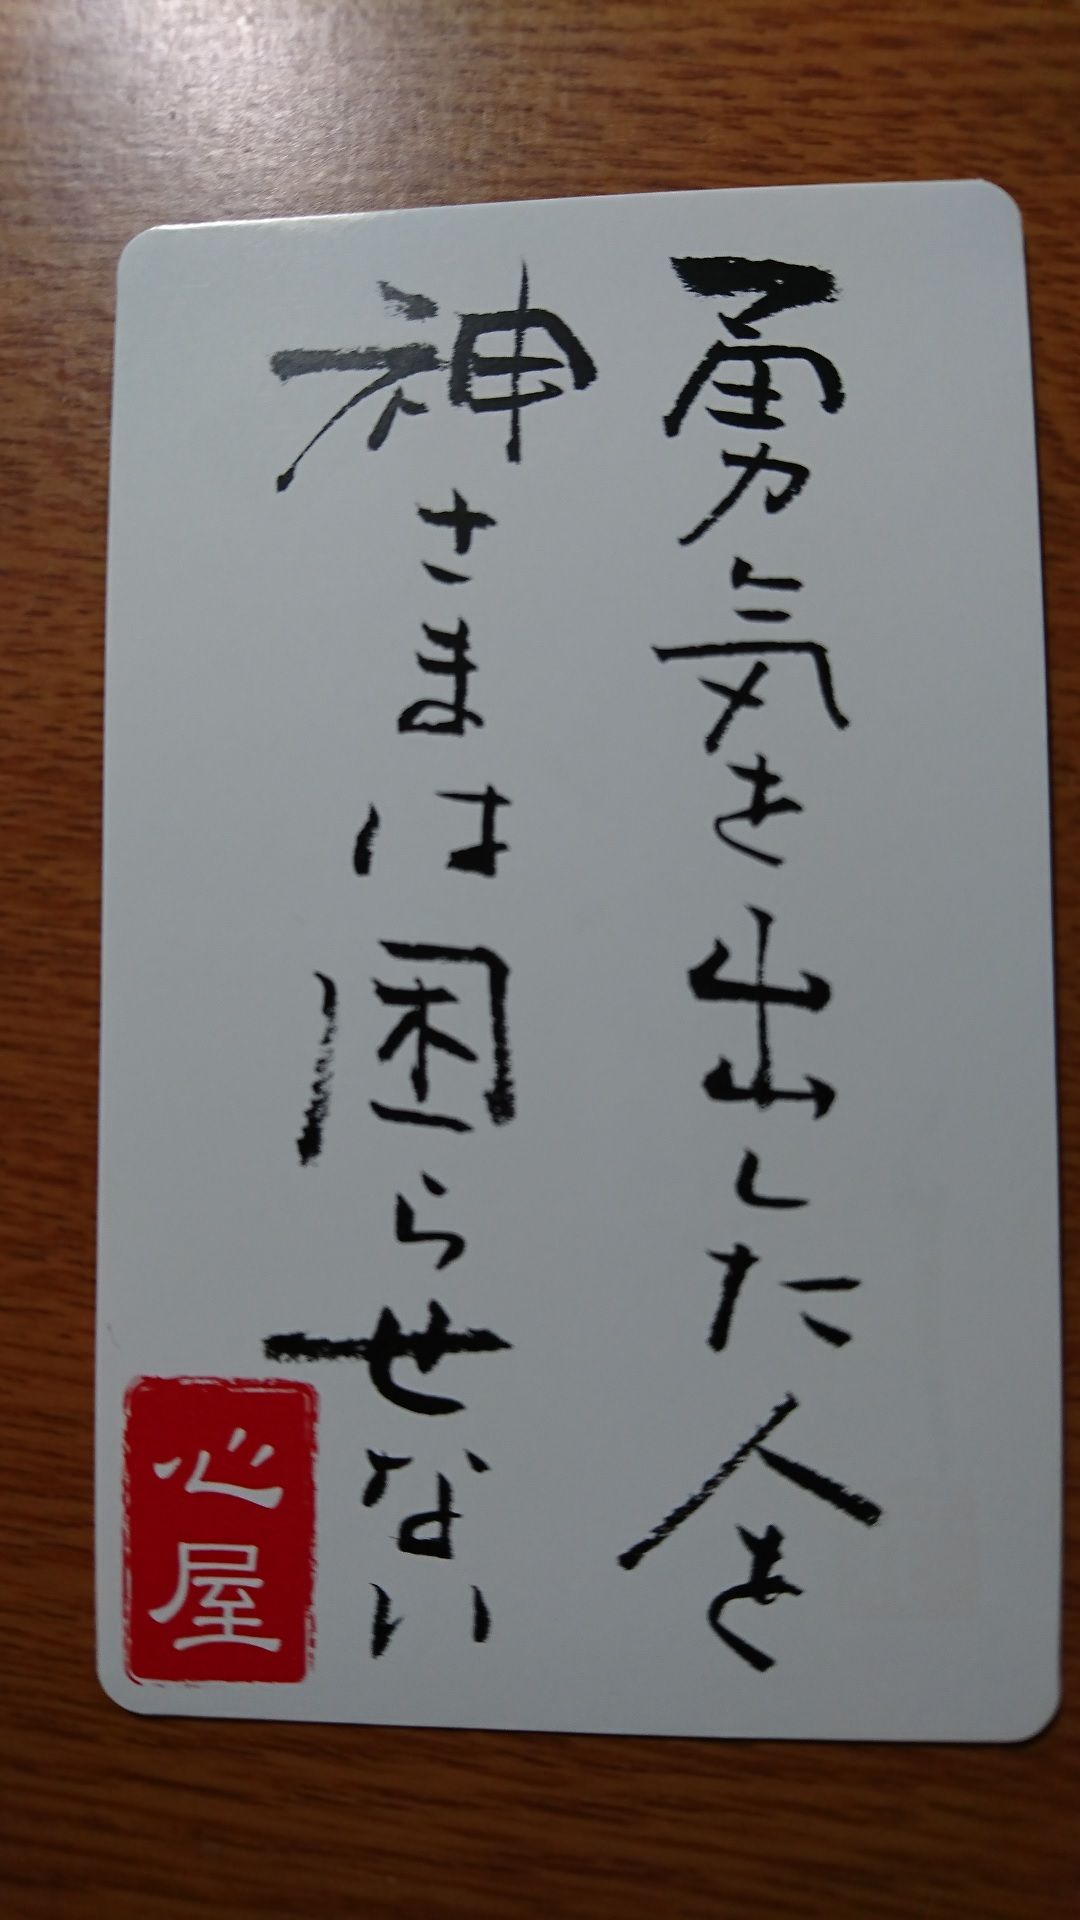 勇気を出した人を
神さまは困らせない
心屋